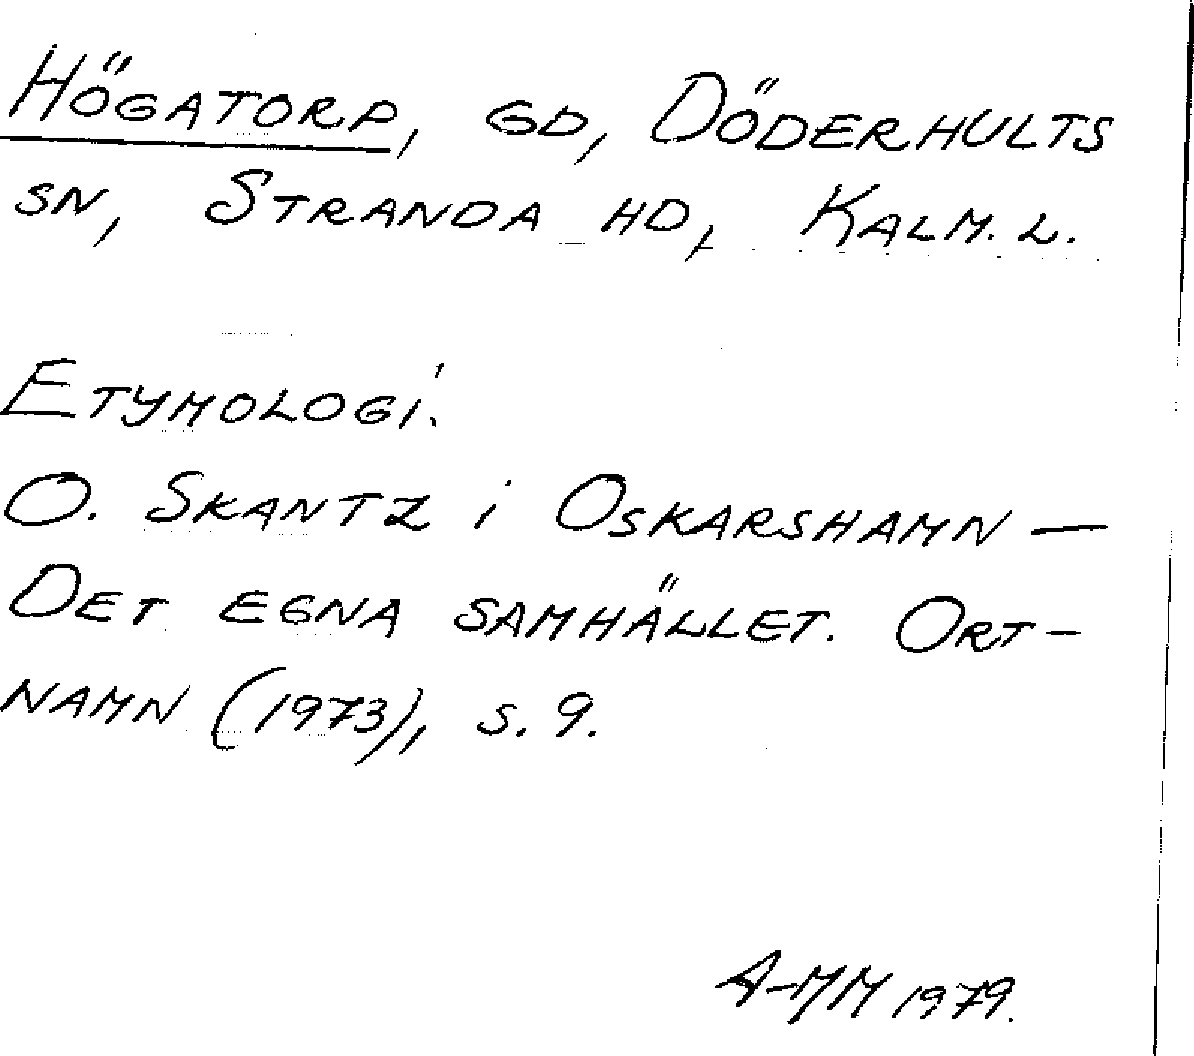 Högatorp, gd, Döderhults
sn, Stranda hd, Kalm. l.
Etymologi.
O. Skantz i Oskarshamn —
Det egna samhället. Ort-
namn (1973), s. 9.
A-MM 1979.